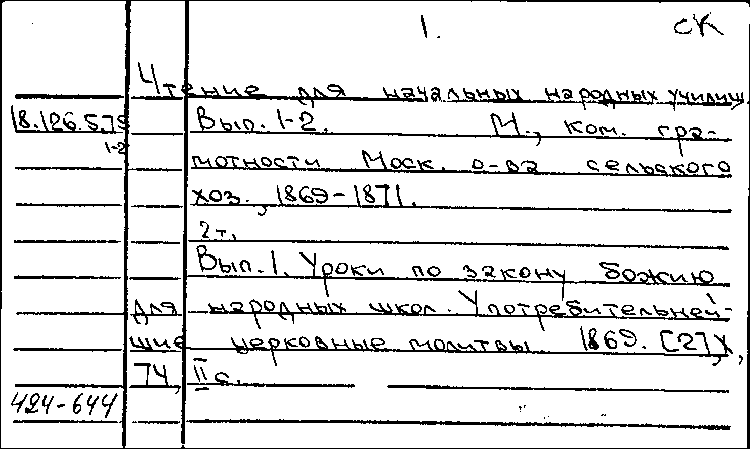 1. СК
Чтение для начальных народных училищ
18.126.5.75 Вып. 1-2. М., ком. гра-
1-2
мотности Моск. о-ва сельского
хоз., 1869-1871.
2 т.
Вып. 1. Уроки по закону божию
для народных школ. Употребительней-
шие церковные молитвы 1869. [2], X,
74, II с.
424-644